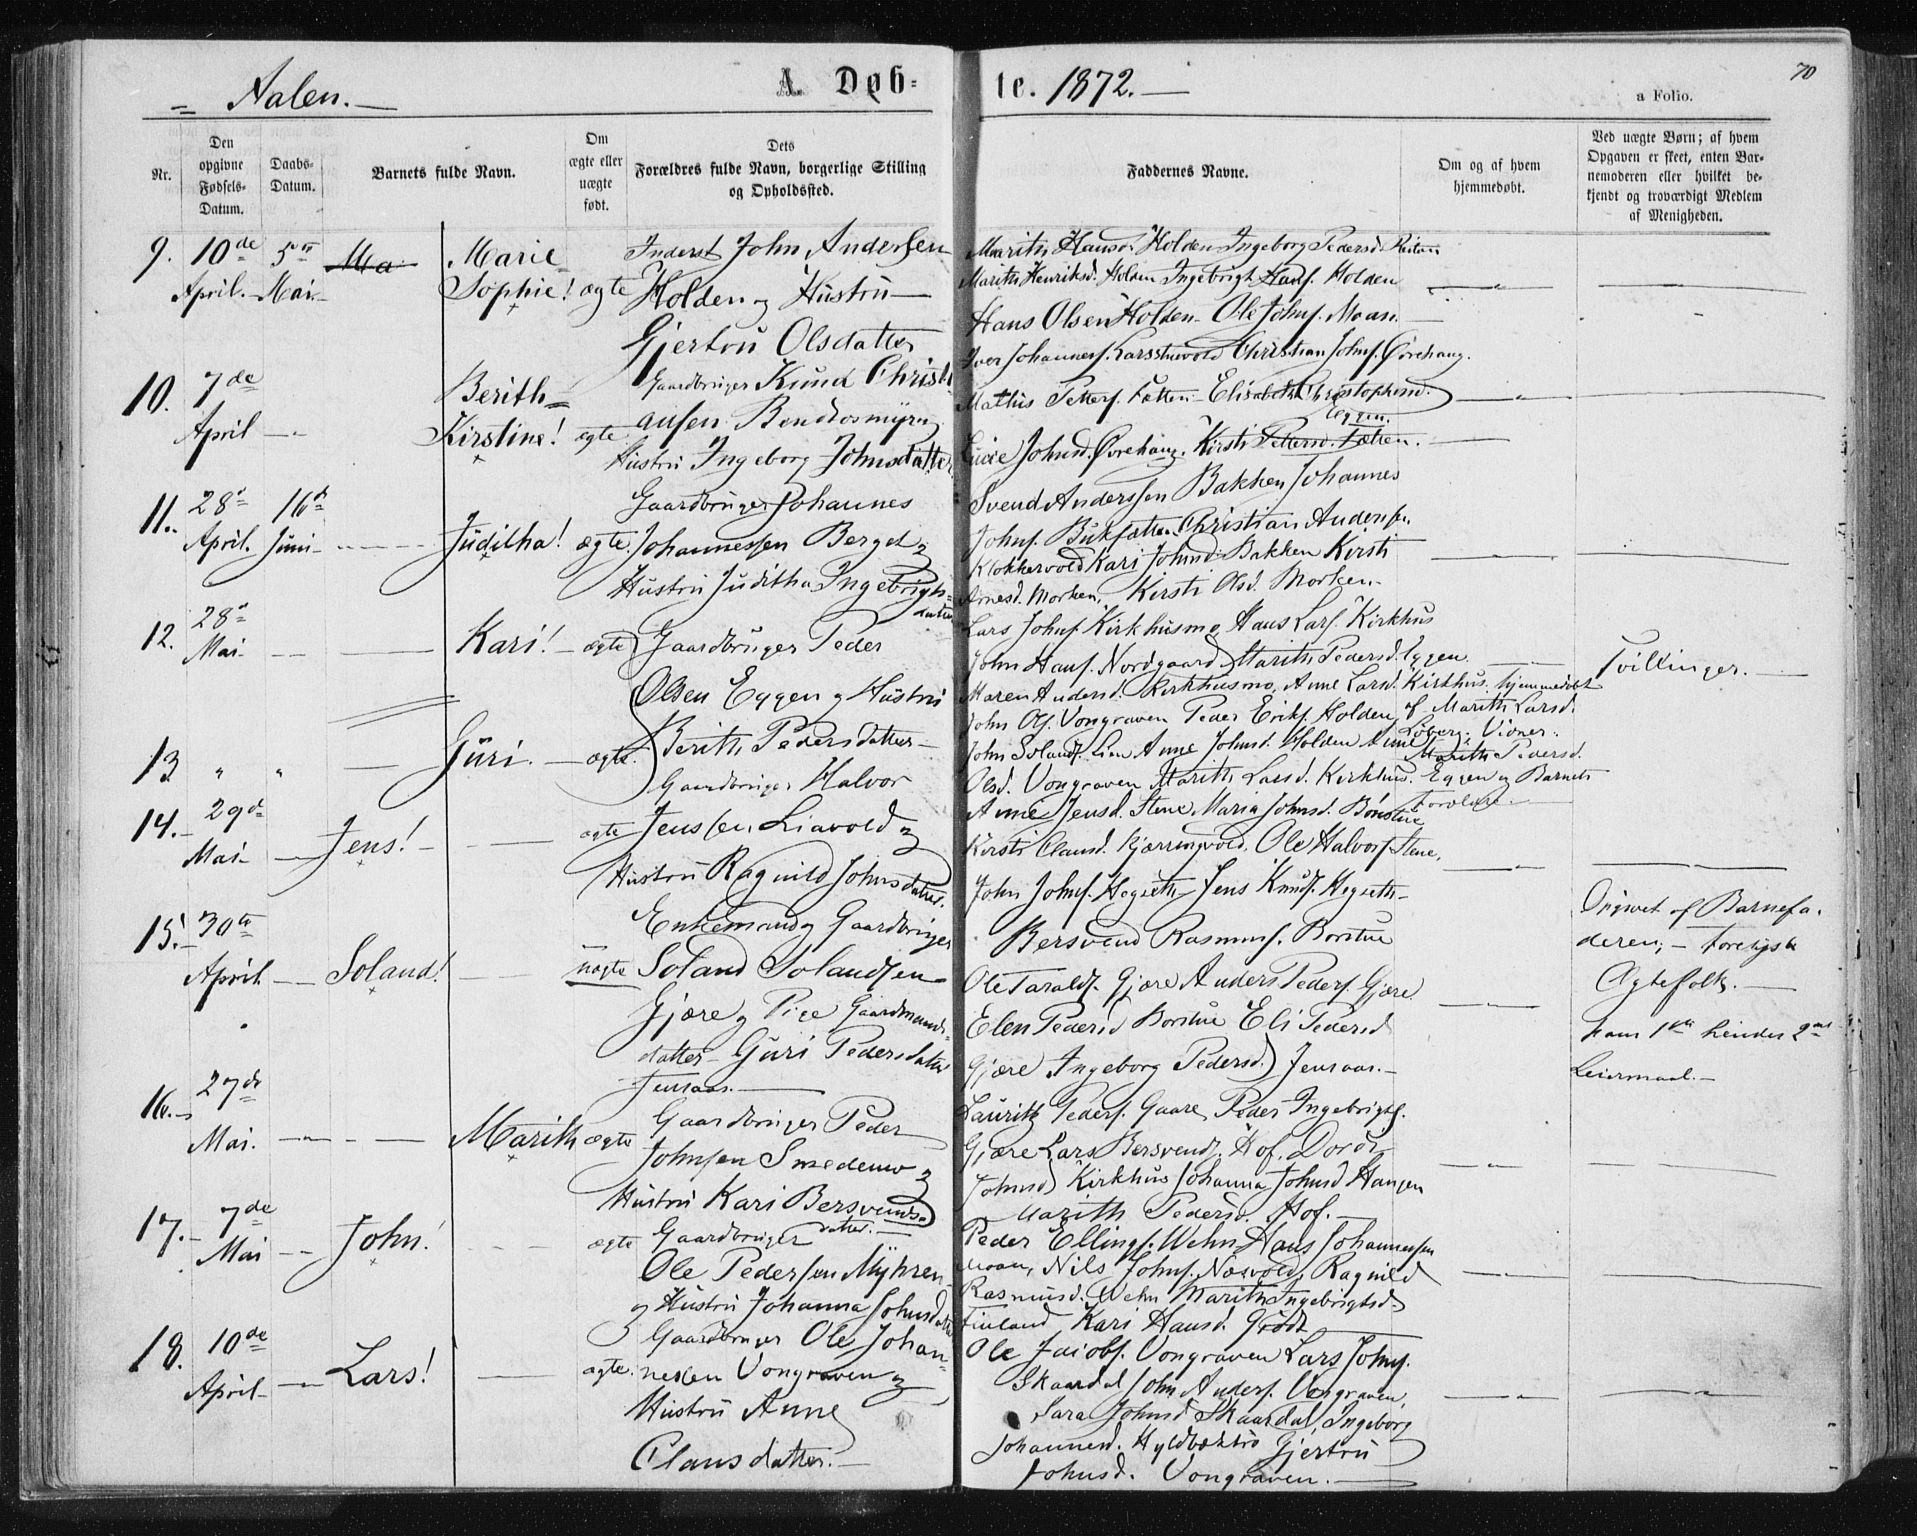 Aalen.
A. Døb-
te. 1872.
70
a Folio.
Nr.
Den opgivne Fødsels-Datum.
Daabs-Datum.
Barnets fulde Navn.
Om ægte eller uægte født.
Dets Forældres fulde Navn, borgerlige Stilling og Opholdssted.
Faddernes Navne.
Om og af hvem hjemmedøbt.
Ved uægte Børn; af hvem Opgaven er skeet, enten Barnemoderen eller hvilket bekjendt og troværdigt Medlem af Menigheden.
9. 10de April. 5te Mai
Ma
Marie Sophie! ægte
Inderst John Anderssen
Holden og Hustru
Gjertru Olsdatter
Marith Hansd. Holden Ingeborg Pedersd. Reitan
Marith Henriksd. Holden Ingebrigt Hansf. Holden
Hans Olsen Holden Ole Johnf. Moan.
10. 7de April
Berith Kirstine! ægte
Gaardbruger Knud Christi
ansen Bendtosmyren
Hustru Ingeborg Johnsdatter
Iver Johannesf. Larsstuvold Christian Johnf. Ørehaug.
Mathis Petterf. Fætten Elisabeth Christophersd.
Eggen.
Lucie Johnsd. Ørehaug. Kirsti Pettersd. Fætten.
11. 28d April. 16d Juni
Juditha! ægte
Gaardbruger Johannes
Johannessen Berget og
Hustru Juditha Ingebrigts-
datter
Svend Anderssen Bakken Johannes
Johnf. Bukfætten Christian Andersen
Klokkervold Kari Johnsd. Bakken Kirsti
Arnesd. Morken. Kirsti Olsd. Morken.
12. 28d Mai
Kari! ægte
Gaardbruger Peder
Olsen Eggen og Hustru
Berith Pedersdatter
Lars Johnf. Kirkhusmo Hans Larsf. Kirkhus
John Hansf. Nordgaard Marith Pedersd. Eggen.
Maren Andersd. Kirkhusmo, Anne Larsd. Kirkhus. hjemmedøbt
Tvillinger.
13 " "
Guri. ægte.
John Olsf. Vongraven Peder Erikf. Holden, af Marith Larsd.
Løberg; Vidner:
John Solandf. Lien Anne Johnsd. Holden Anne Marith Pedersd.
Olsd. Vongraven Marith Larsd. Kirkhus. Eggen og Barnets
Forældre.
14. 29d Mai
Jens! ægte
Gaardbruger Halvor
Jenssen Liavold og
Hustru Ragnild Johnsdatter.
Anne Jensd. Stene Maria Johnsd. Bönstue
Kirsti Clausd. Kjærringvold. Ole Halvorf. Stene.
John Johnf. Hegseth Jens Knudf. Hegseth
15. 30te April
Soland! uægte
Enkemand og Gaardbruger
Soland Solandsen
Gjære og Pige Gaardmands-
datter Guri Pedersdatter
Jensaas.
Bersvend Rasmusf. Borstue
Ole Taraldf. Gjære Anders Pedersf. Gjære
Elen Pedersd. Borstue Eli Pedersd
Gjære Ingeborg Pedersd. Jensaas.
Opgivet af Barnefa-
deren;
Ægtefolk.
ham 1ste hendes 2det
Leiermaal.
16. 27de Mai.
Marith ægte
Gaardbruger Peder
Johnsen Smedemo og
Hustru Kari Bersvends-
datter.
Lauritz Pedersf. Gaare Peder Ingebrigtf.
Gjære Lars Bersvendf. Hof. Dordi
Johnsd. Kirkhus Johanna Johnsd Haugen
Marith Pedersd. Hof.
17. 7de Mai
John! ægte
Gaardbruger
Ole Pedersen Myhren
og Hustru Johanna Johnsdatter
Peder Ellingf. Wehn Hans Johannessen
Moan, Nils Johnf. Næsvold, Ragnild
Rasmusd. Wehn Marith Ingebrigtsd.
Finland Kari Hansd. Grødt
18. 10de April
Lars! ægte.
Gaardbruger Ole Johan-
nesen Vongraven og
Hustru Anne
Clausdatter.
Ole Jacobf. Vongraven Lars Johnf.
Skaardal John Andersf. Vongraven,
Sara Johnsd Skaardal Ingeborg
Johannesd. Hyldbækmo Gjertru
Johnsd. Vongraven.